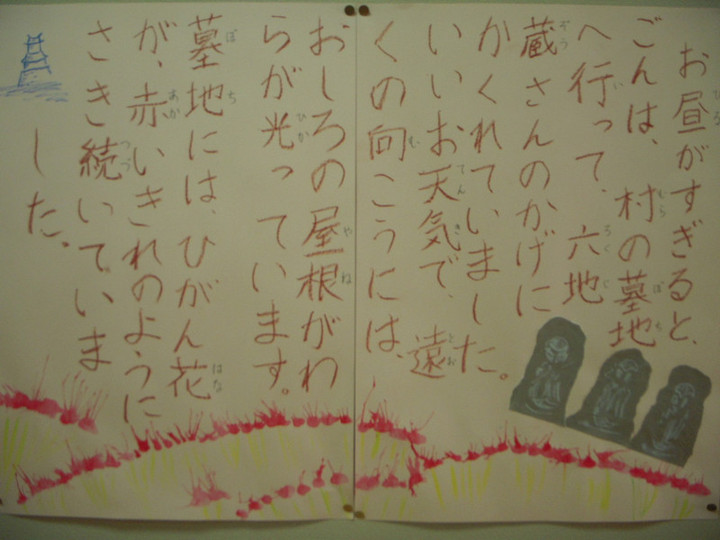 お昼がすぎると、
ごんは、村の墓地
へ行って、六地
蔵さんのかげに
かくれていました。
いいお天気で、遠
くの向こうには、
おしろの屋根がわ
らが光っています。
墓地には、ひがん花
が、赤いきれのように
さき続いていま
した。